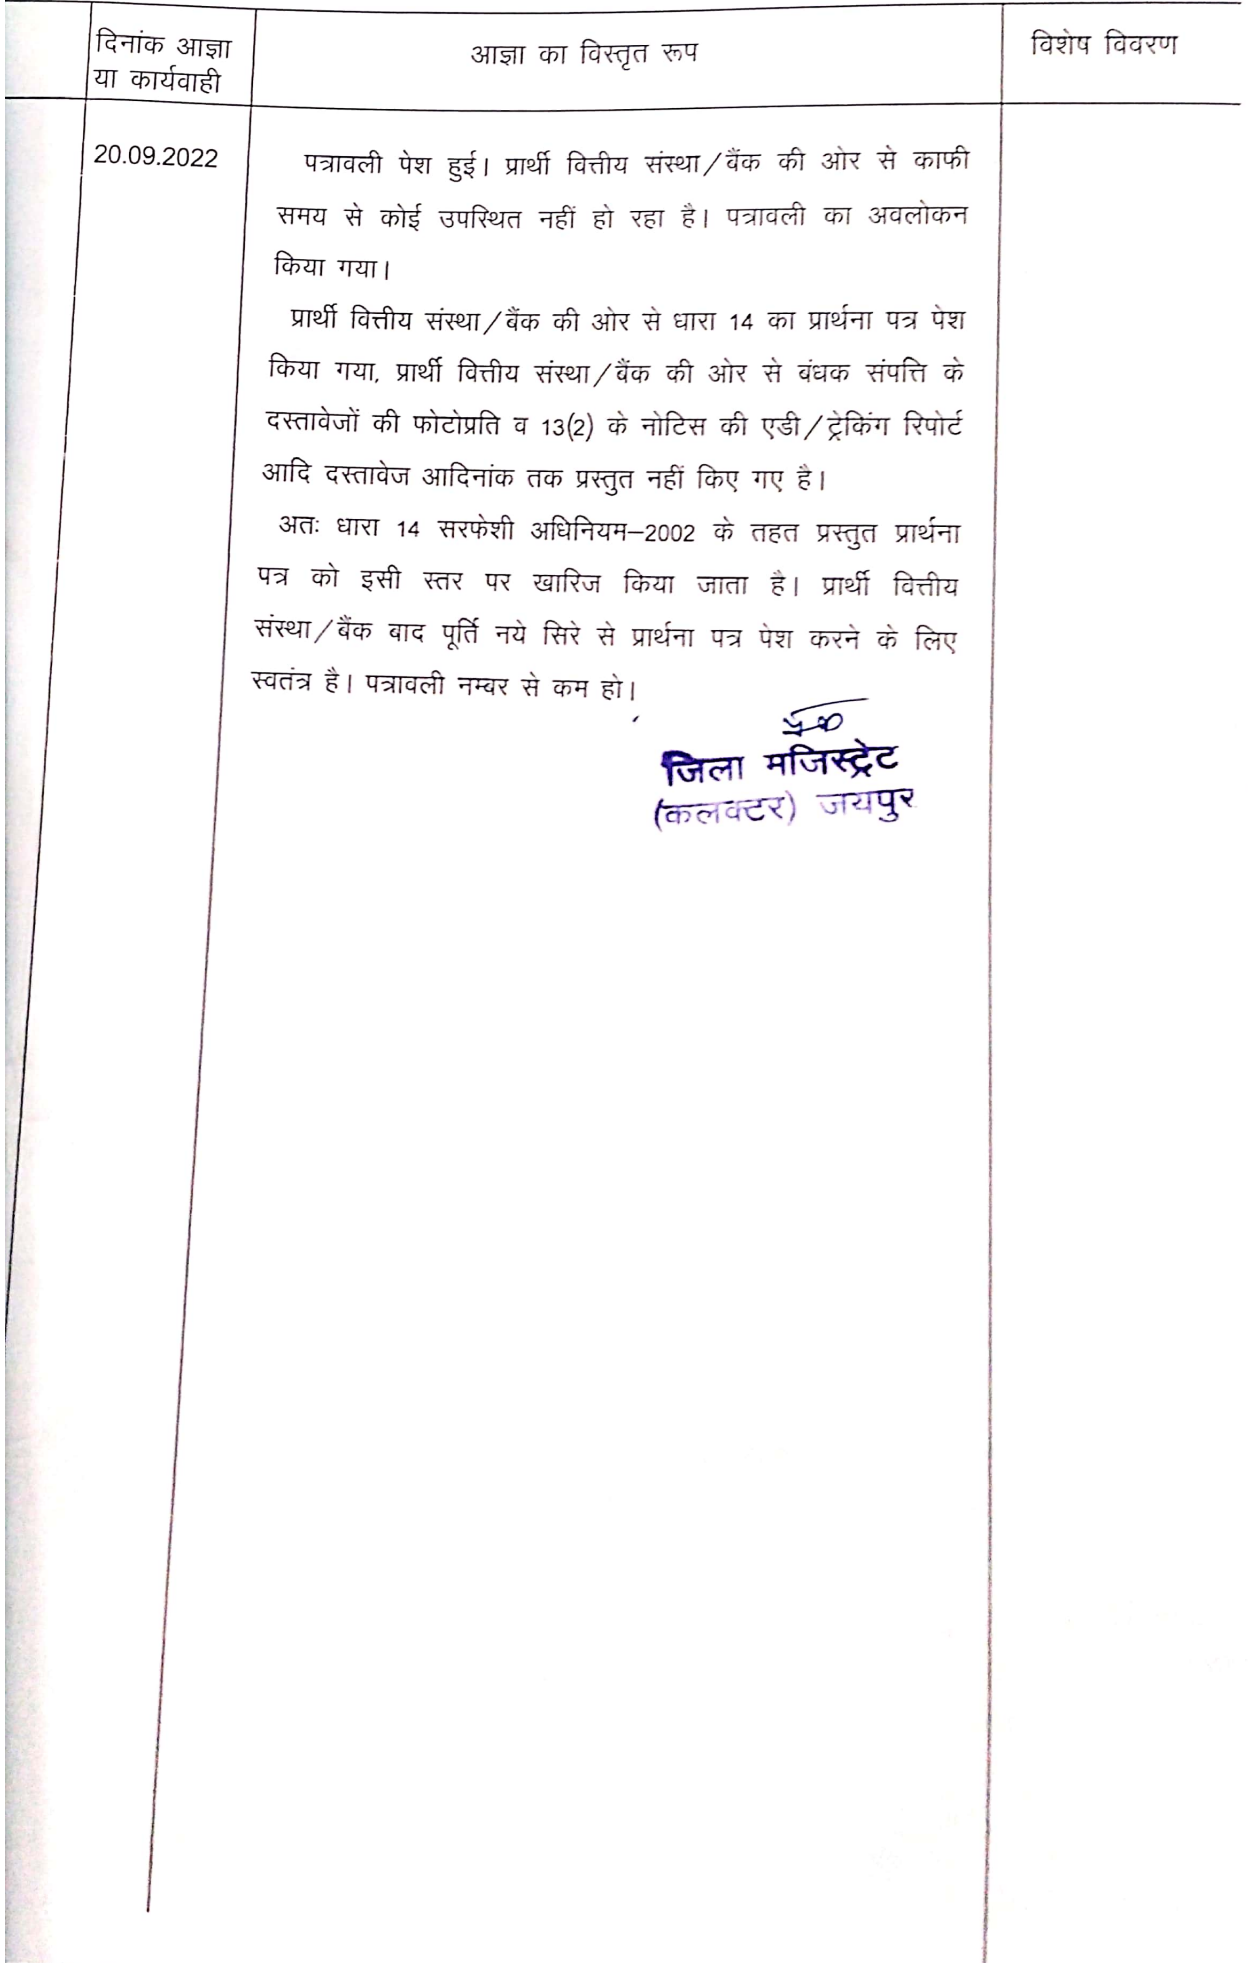 दिनांक आज्ञा
या कार्यवाही
आज्ञा का विस्तृत रूप
विशेष विवरण
20.09.2022
पत्रावली पेश हुई। प्रार्थी वित्तीय संस्था/बैंक की ओर से काफी
समय से कोई उपस्थित नहीं हो रहा है। पत्रावली का अवलोकन
किया गया।
प्रार्थी वित्तीय संस्था/बैंक की ओर से धारा 14 का प्रार्थना पत्र पेश
किया गया, प्रार्थी वित्तीय संस्था/बैंक की ओर से बंधक संपत्ति के
दस्तावेजों की फोटोप्रति व 13(2) के नोटिस की एडी/ट्रेकिंग रिपोर्ट
आदि दस्तावेज आदिनांक तक प्रस्तुत नहीं किए गए है।
अतः धारा 14 सरफेशी अधिनियम–2002 के तहत प्रस्तुत प्रार्थना
पत्र को इसी स्तर पर खारिज किया जाता है। प्रार्थी वित्तीय
संस्था/बैंक बाद पूर्ति नये सिरे से प्रार्थना पत्र पेश करने के लिए
स्वतंत्र है। पत्रावली नम्बर से कम हो।
जिला मजिस्ट्रेट
(कलक्टर) जयपुर